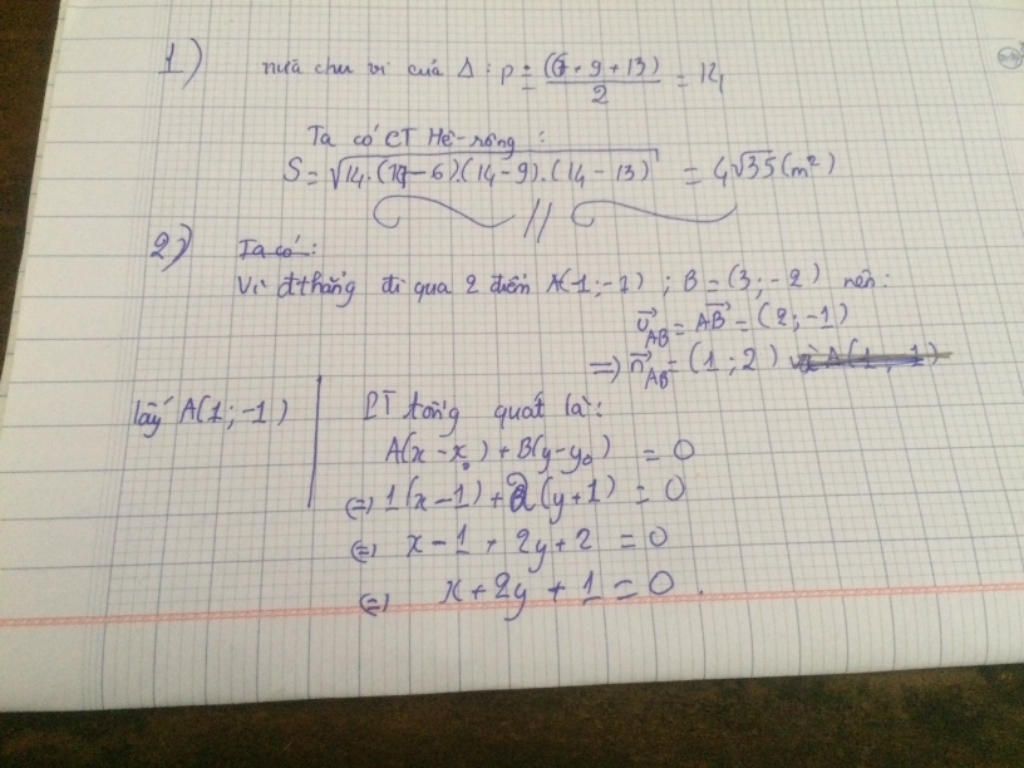 1)
nửa chu vi của Δ : p = (6+9+13)/2 = 14
Ta có CT Hê-rông :
S = √14.(14-6).(14-9).(14-13) = 4√35 (m²)
//
2) Ta có:
Vì đthẳng đi qua 2 điểm A(1;-1) ; B = (3;-2) nên:
u⃗AB = AB⃗ = (2;-1)
=> n⃗AB = (1;2)
lấy A(1;-1)
PT tổng quát là:
A(x-x₀) + B(y-y₀) = 0
(=) 1(x-1) + 2(y+1) = 0
(=) x-1 + 2y+2 = 0
(=) x+2y+1 = 0.